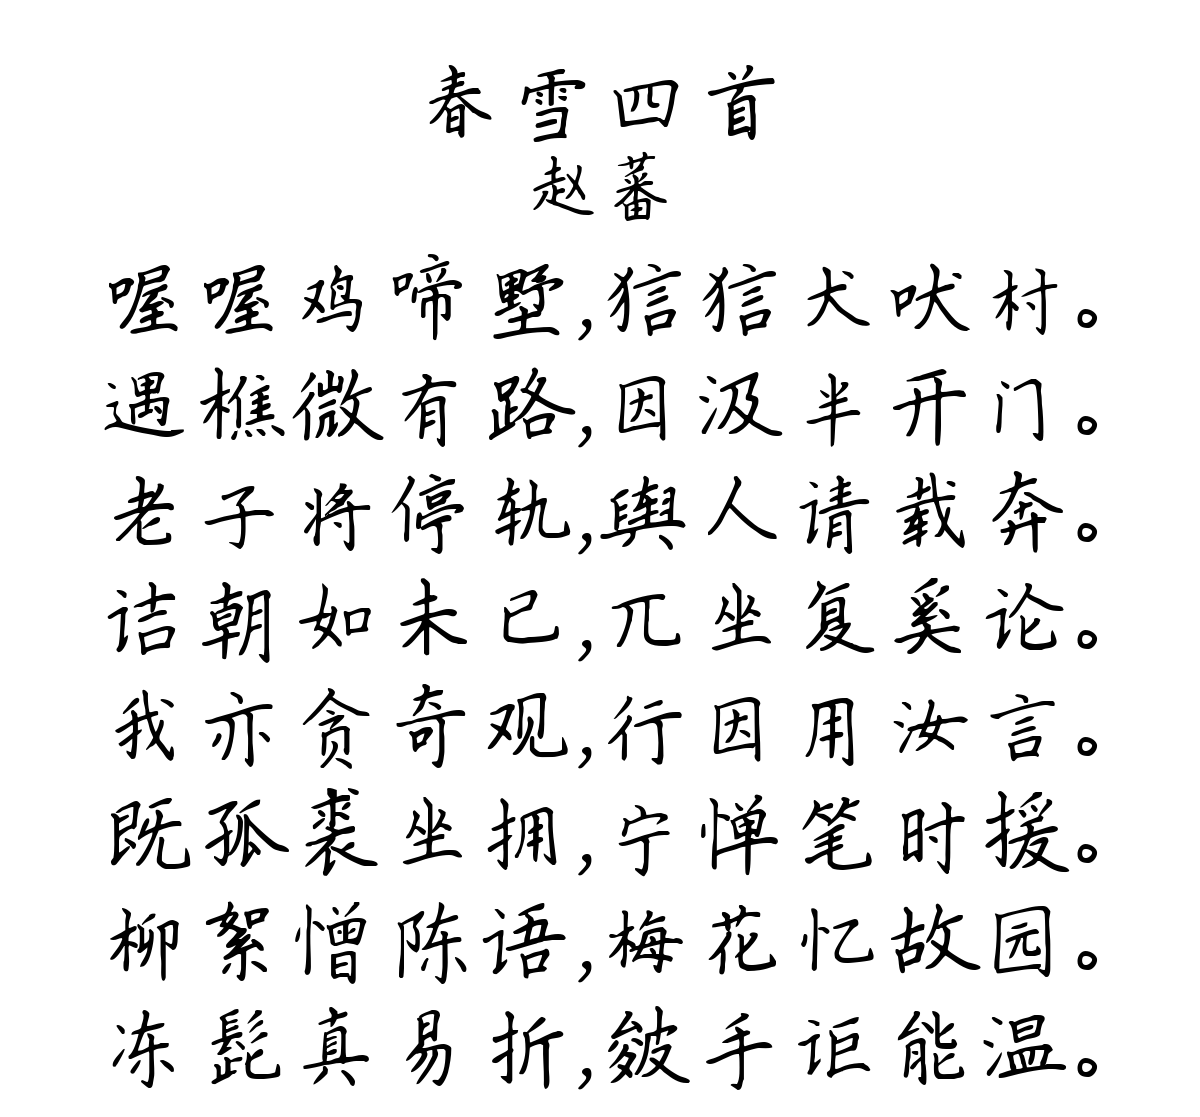 春雪四首
赵蕃
喔喔鸡啼墅,狺狺犬吠村。
遇樵微有路,因汲半开门。
老子将停轨,舆人请载奔。
诘朝如未已,兀坐复奚论。
我亦贪奇观,行因用汝言。
既孤裘坐拥,宁惮笔时援。
柳絮憎陈语,梅花忆故园。
冻髭真易折,皴手讵能温。